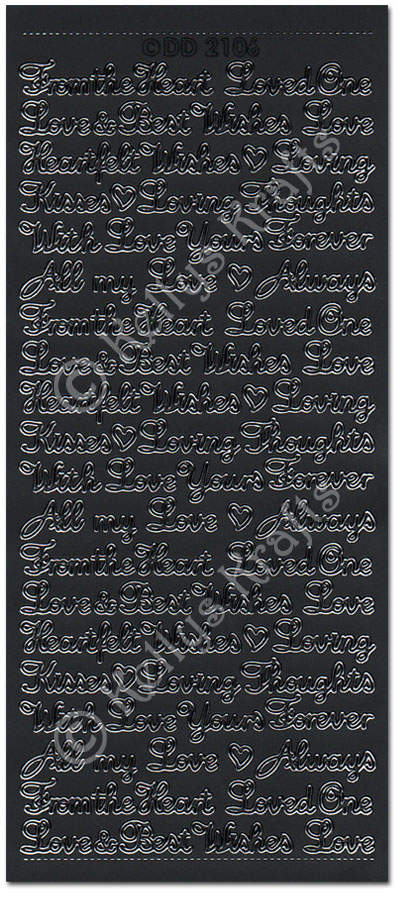 ©DD 2106
From the Heart Loved One
Love & Best Wishes Love
Heartfelt Wishes ♡ Loving
Kisses ♡ Loving Thoughts
With Love Yours Forever
All my Love ♡ Always
From the Heart Loved One
Love & Best Wishes Love
Heartfelt Wishes ♡ Loving
Kisses ♡ Loving Thoughts
With Love Yours Forever
All my Love ♡ Always
From the Heart Loved One
Love & Best Wishes Love
Heartfelt Wishes ♡ Loving
Kisses ♡ Loving Thoughts
With Love Yours Forever
All my Love ♡ Always
From the Heart Loved One
Love & Best Wishes Love
© Kellys Krafts
© Kellys Krafts